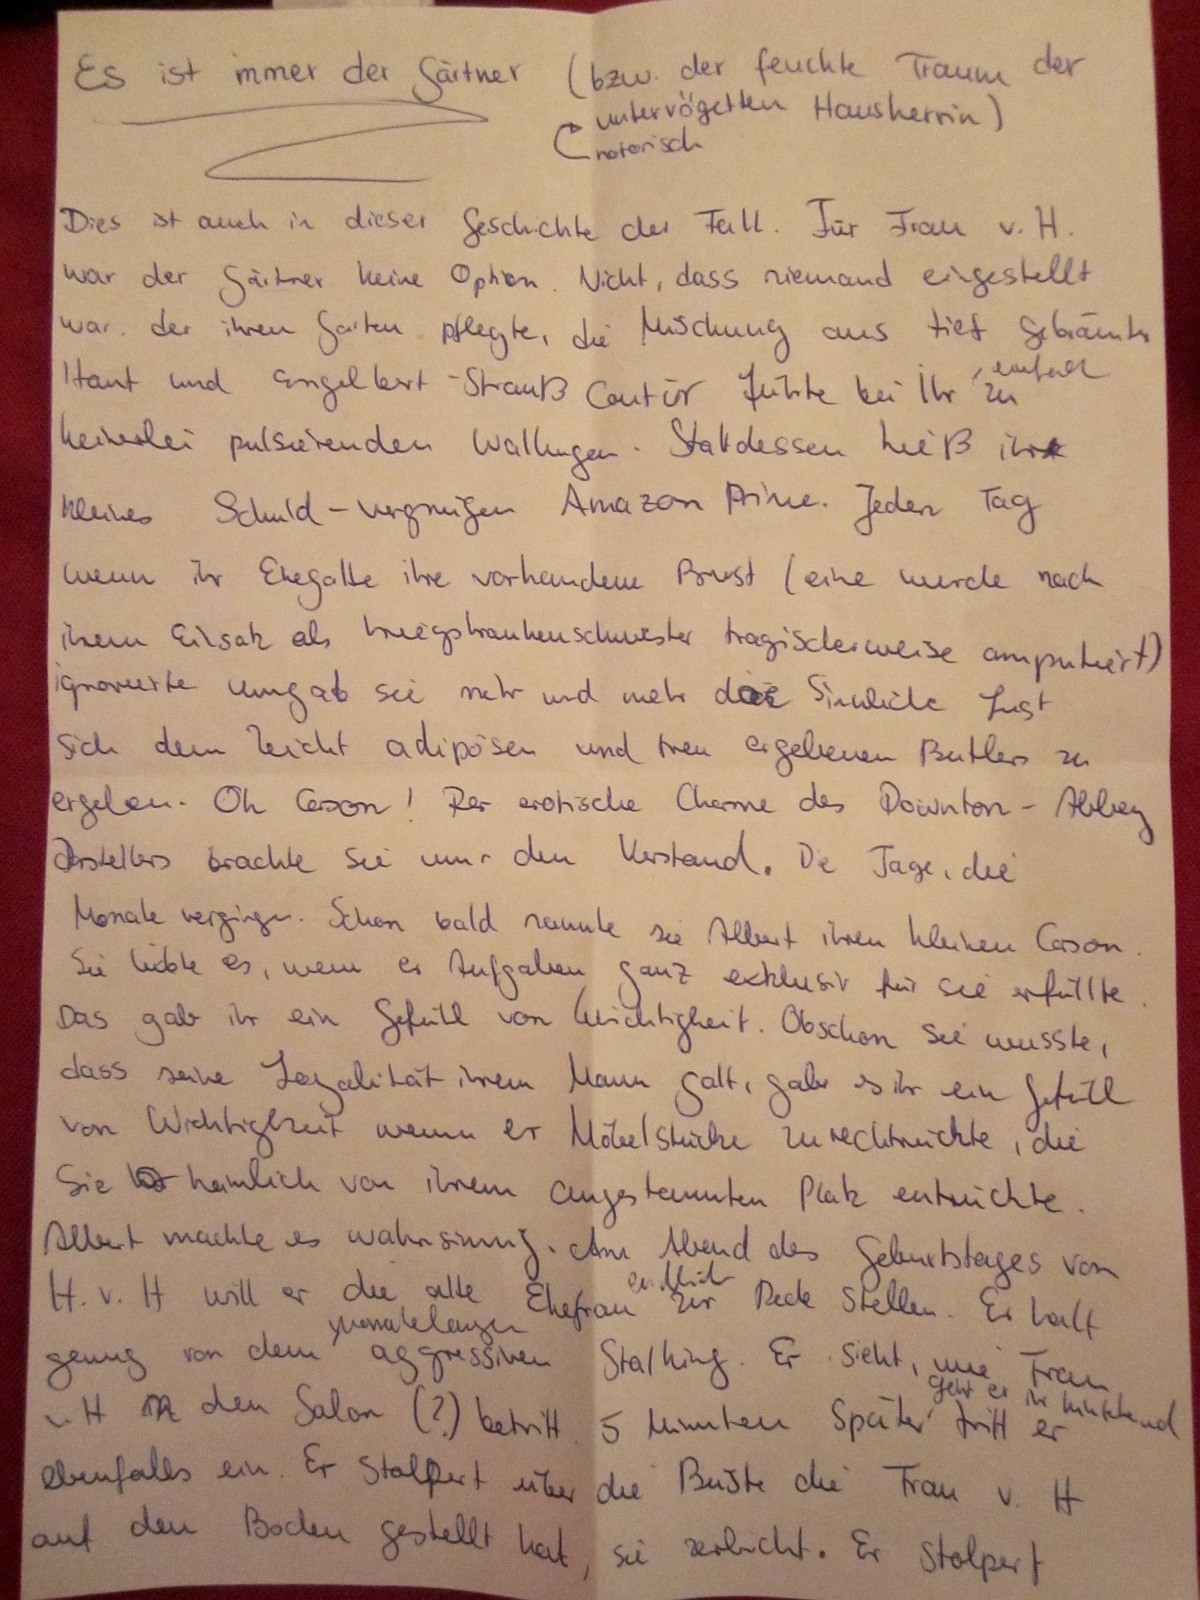 Es ist immer der Gärtner (bzw. der feuchte Traum der
untervögelten Hausherrin)
notorisch
Dies ist auch in dieser Geschichte der Fall. Für Frau v. H.
war der Gärtner keine Option. Nicht, dass niemand eingestellt
war der ihren Garten pflegte, die Mischung aus tief gebräunter
Haut und Engelbert-Strauß Coutür führte bei Ihr einfach zu
keinerlei pulsierenden Wallungen. Stattdessen hieß ihr
kleines Schuld-vergnügen Amazon Prime. Jeden Tag
wenn ihr Ehegatte ihre vorhandene Brust (eine wurde nach
ihrem Einsatz als Kriegskrankenschwester tragischerweise amputiert)
ignorierte umgab sie mehr und mehr die Sinnliche Lust
sich dem leicht adipösen und treu ergebenen Butlers zu
ergeben. Oh Carson! Der erotische Charme des Downton-Abbey
Darstellers brachte Sie um den Verstand. Die Tage, die
Monate vergingen. Schon bald nannte sie Albert ihren kleinen Carson.
Sie liebte es, wenn er Aufgaben ganz exklusiv für sie erfüllte.
Das gab ihr ein Gefühl von Wichtigkeit. Obschon sie wusste,
dass seine Loyalität ihrem Mann galt, gab es ihr ein Gefühl
von Wichtigkeit wenn er Möbelstücke zurechtrückte, die
Sie heimlich von ihrem angestammten Platz entrückte.
Albert machte es wahnsinnig. Am Abend des Geburtstages von
H. v. H will er die alte Ehefrau endlich zur Rede Stellen. Er hat
genug von dem monatelangen aggressiven Stalking. Er sieht, wie Frau
v. H den Salon (?) betritt. 5 Minuten Später tritt er
geht er ihr
ebenfalls ein. Er Stolpert über die Büste die Frau v. H
auf den Boden gestellt hat, sie zerbricht. Er Stolpert